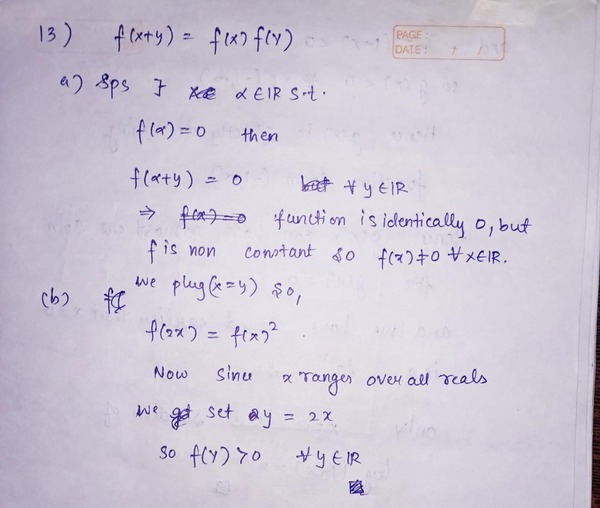 13) f(x+y) = f(x) f(y)
PAGE:
DATE: / /
a) Sps ∃ α ∈ IR s.t.
f(α) = 0 then
f(α+y) = 0 ∀ y ∈ IR
⇒ function is identically 0, but
f is non constant so f(x) ≠ 0 ∀ x ∈ IR.
(b) we plug (x=y) so,
f(2x) = f(x)² .
Now since x ranges over all reals
we set y = 2x
so f(y) > 0 ∀ y ∈ IR